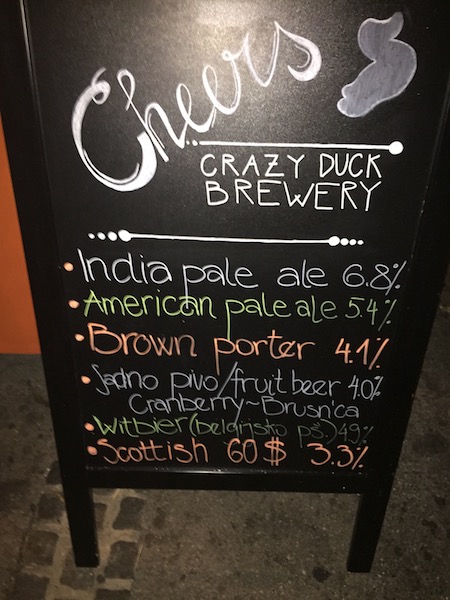 Cheers
CRAZY DUCK
BREWERY
India pale ale 6.8%
American pale ale 5.4%
Brown porter 4.1%
Sadno pivo/fruit beer 4.0%
Cranberry~Brusn'ca
Witbier (belgijsko pš.) 4.9%
Scottish 60$ 3.3%